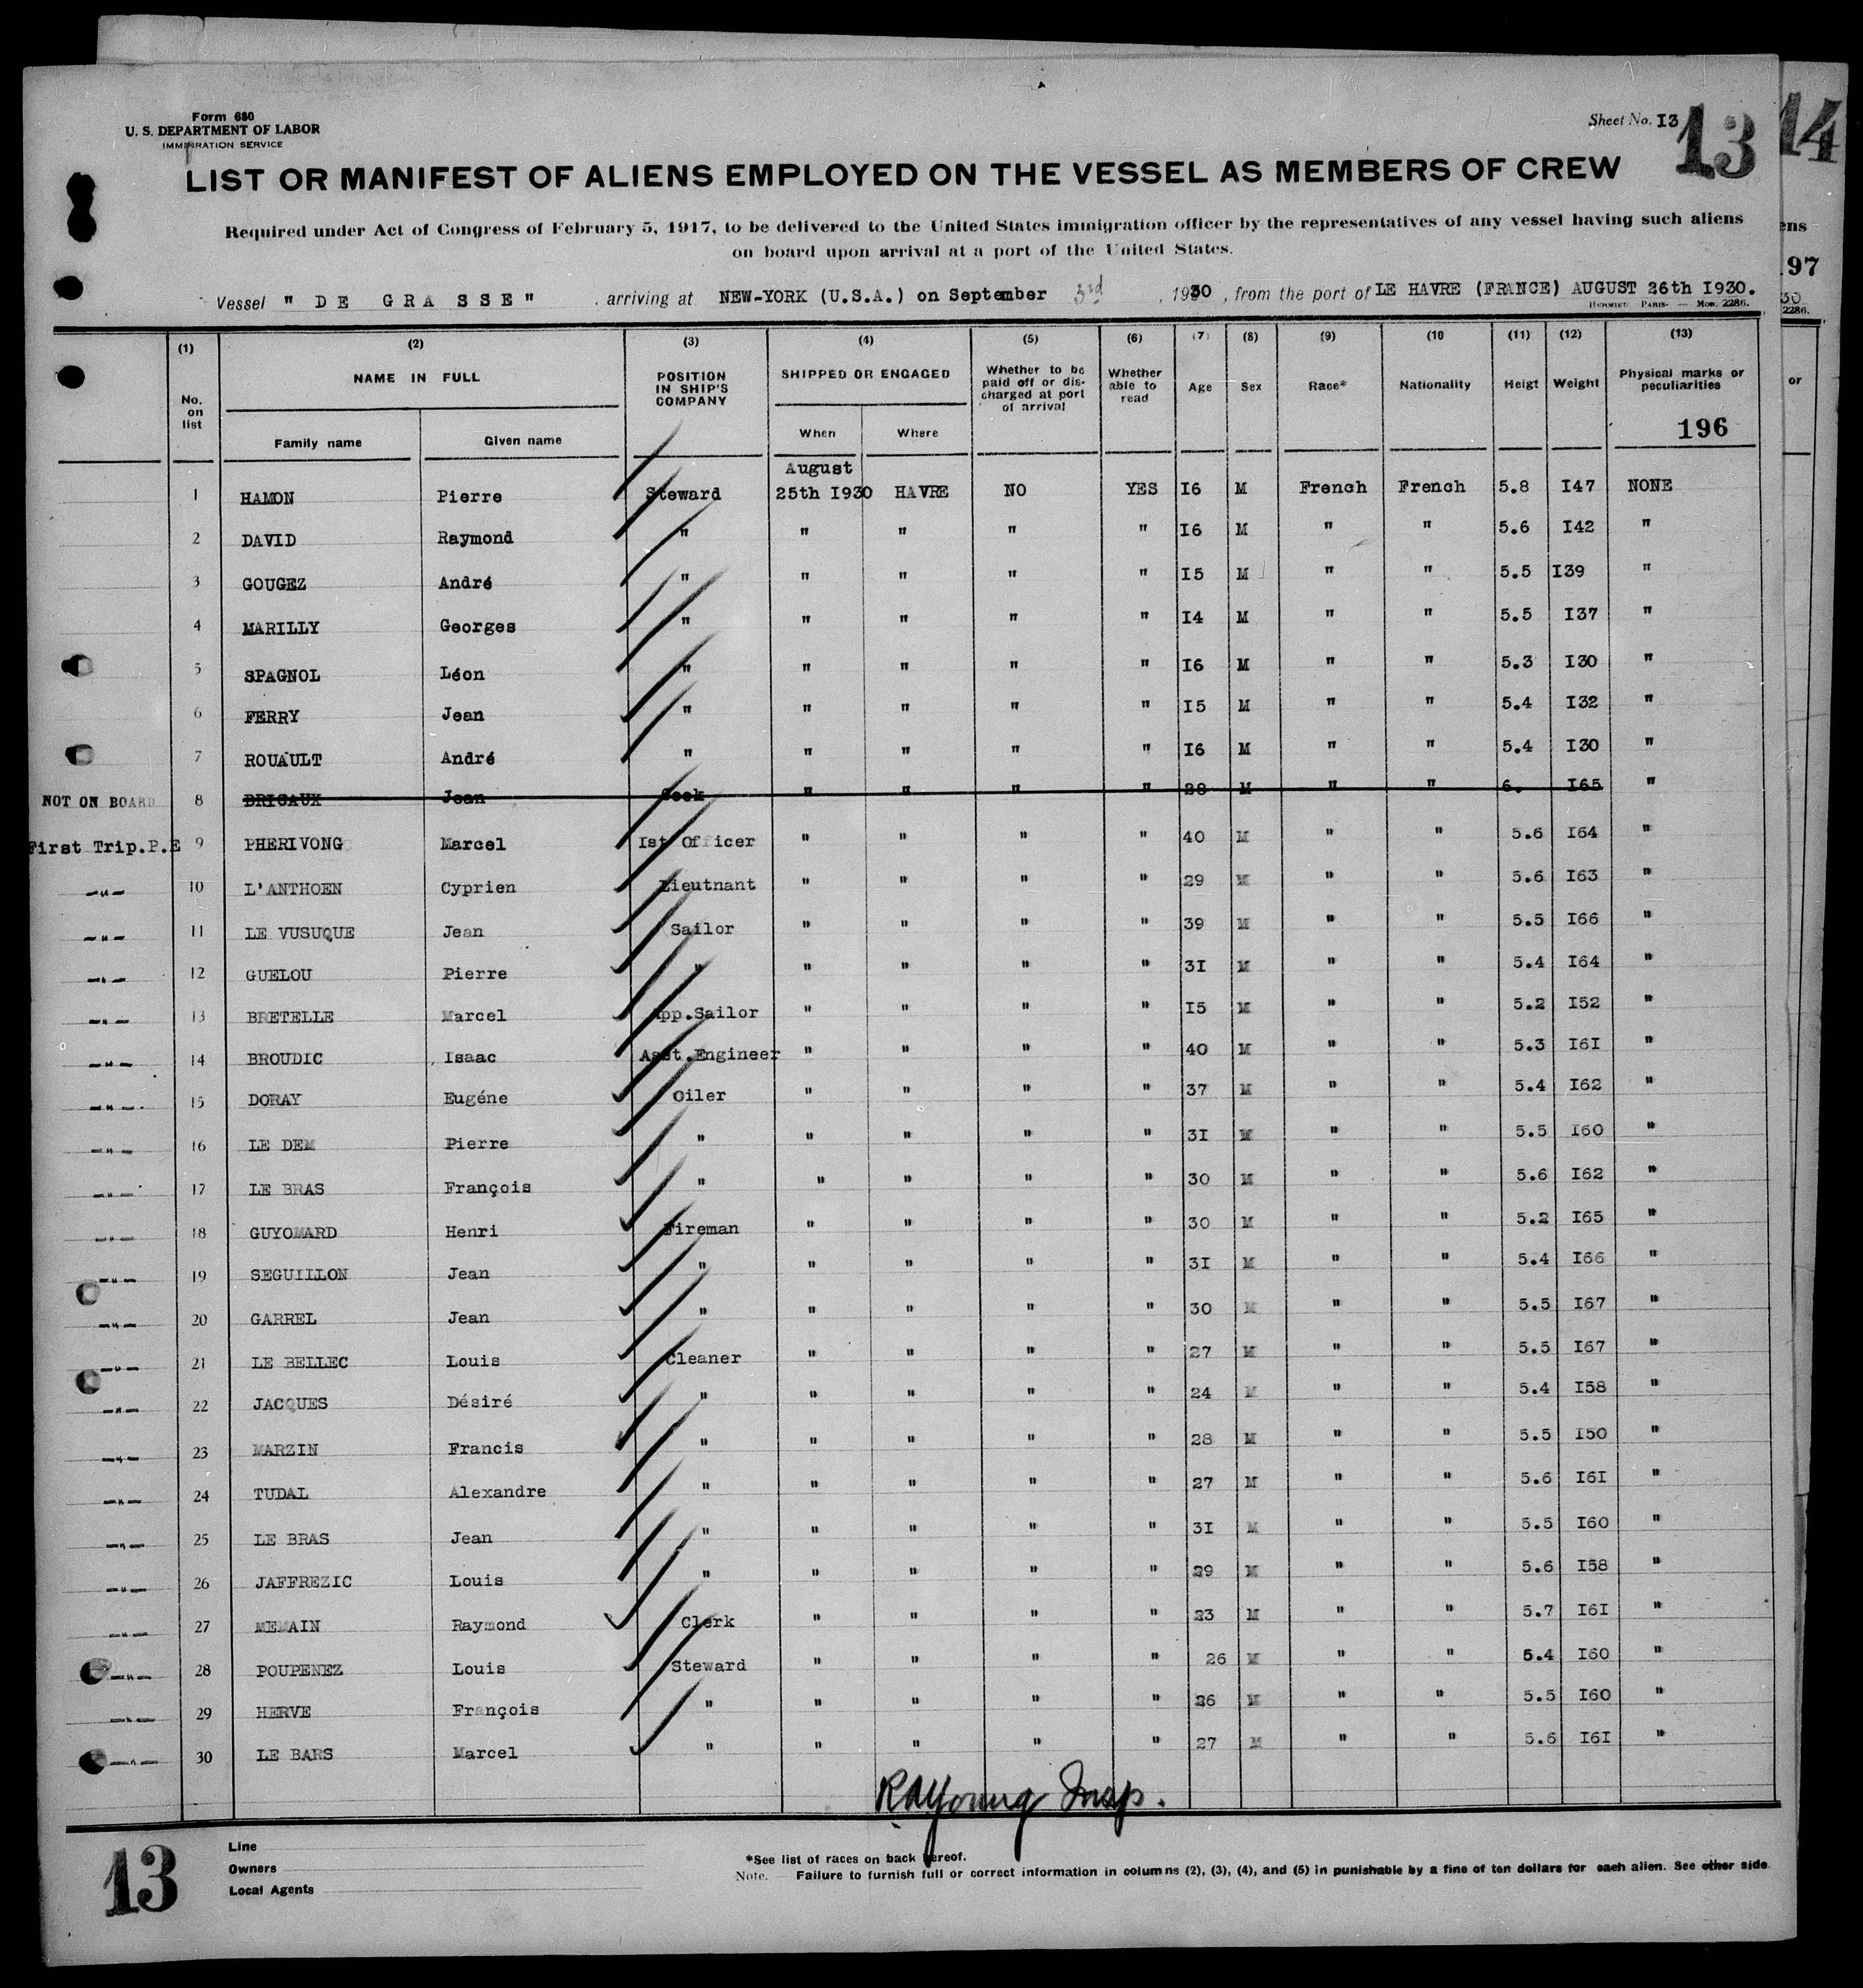 Form 680
U. S. DEPARTMENT OF LABOR
IMMIGRATION SERVICE
Sheet No. I3
13
14
LIST OR MANIFEST OF ALIENS EMPLOYED ON THE VESSEL AS MEMBERS OF CREW
Required under Act of Congress of February 5, 1917, to be delivered to the United States immigration officer by the representatives of any vessel having such aliens
on board upon arrival at a port of the United States.
ens
197
Vessel " DE GRASSE" , arriving at NEW-YORK (U.S.A.) on September 3rd , 1930 , from the port of LE HAVRE (FRANCE) AUGUST 26th I930.
HERMIEU. PARIS- — MOD. 2286.
30
2286.
(1) (2) (3) (4) (5) (6) (7) (8) (9) (10 (11) (12) (13)
No. on list NAME IN FULL POSITION IN SHIP'S COMPANY SHIPPED OR ENGAGED Whether to be paid off or dis- charged at port of arrival Whether able to read Age Sex Race* Nationality Heigt Weight Physical marks or peculiarities
or
196
Family name Given name When Where
August
1 HAMON Pierre Steward 25th I930 HAVRE NO YES I6 M French French 5.8 I47 NONE
2 DAVID Raymond " " " " " I6 M " " 5.6 I42 "
3 GOUGEZ André " " " " " I5 M " " 5.5 I39 "
4 MARILLY Georges " " " " " I4 M " " 5.5 I37 "
5 SPAGNOL Léon " " " " " I6 M " " 5.3 I30 "
6 FERRY Jean " " " " " I5 M " " 5.4 I32 "
7 ROUAULT André " " " " " I6 M " " 5.4 I30 "
NOT ON BOARD 8 BRIGAUX Jean Cook " " " " 28 M " " 6. I65 "
First Trip.P.E 9 PHERIVONG Marcel Ist Officer " " " " 40 M " " 5.6 I64 "
—"— 10 L'ANTHOEN Cyprien Lieutnant " " " " 29 M " " 5.6 I63 "
—"— 11 LE VUSUQUE Jean Sailor " " " " 39 M " " 5.5 I66 "
—"— 12 GUELOU Pierre " " " " " 3I M " " 5.4 I64 "
—"— 13 BRETELLE Marcel App.Sailor " " " " I5 M " " 5.2 I52 "
—"— 14 BROUDIC Isaac Asst.Engineer " " " " 40 M " " 5.3 I6I "
—"— 15 DORAY Eugéne Oiler " " " " 37 M " " 5.4 I62 "
—"— 16 LE DEM Pierre " " " " " 3I M " " 5.5 I60 "
—"— 17 LE BRAS François " " " " " 30 M " " 5.6 I62 "
—"— 18 GUYOMARD Henri Fireman " " " " 30 M " " 5.2 I65 "
—"— 19 SEGUILLON Jean " " " " " 3I M " " 5.4 I66 "
—"— 20 GARREL Jean " " " " " 30 M " " 5.5 I67 "
—"— 21 LE BELLEC Louis Cleaner " " " " 27 M " " 5.5 I67 "
—"— 22 JACQUES Désiré " " " " " 24 M " " 5.4 I58 "
—"— 23 MARZIN Francis " " " " " 28 M " " 5.5 I50 "
—"— 24 TUDAL Alexandre " " " " " 27 M " " 5.6 I6I "
—"— 25 LE BRAS Jean " " " " " 3I M " " 5.5 I60 "
—"— 26 JAFFREZIC Louis " " " " " 29 M " " 5.6 I58 "
—"— 27 MEMAIN Raymond Clerk " " " " 23 M " " 5.7 I6I "
—"— 28 POUPENEZ Louis Steward " " " " 26 M " " 5.4 I60 "
—"— 29 HERVE François " " " " " 26 M " " 5.5 I60 "
—"— 30 LE BARS Marcel " " " " " 27 M " " 5.6 I6I "
RAYoung Insp.
13
Line
Owners
Local Agents
*See list of races on back hereof.
Note. — Failure to furnish full or correct information in columns (2), (3), (4), and (5) in punishable by a fine of ten dollars for each alien. See other side